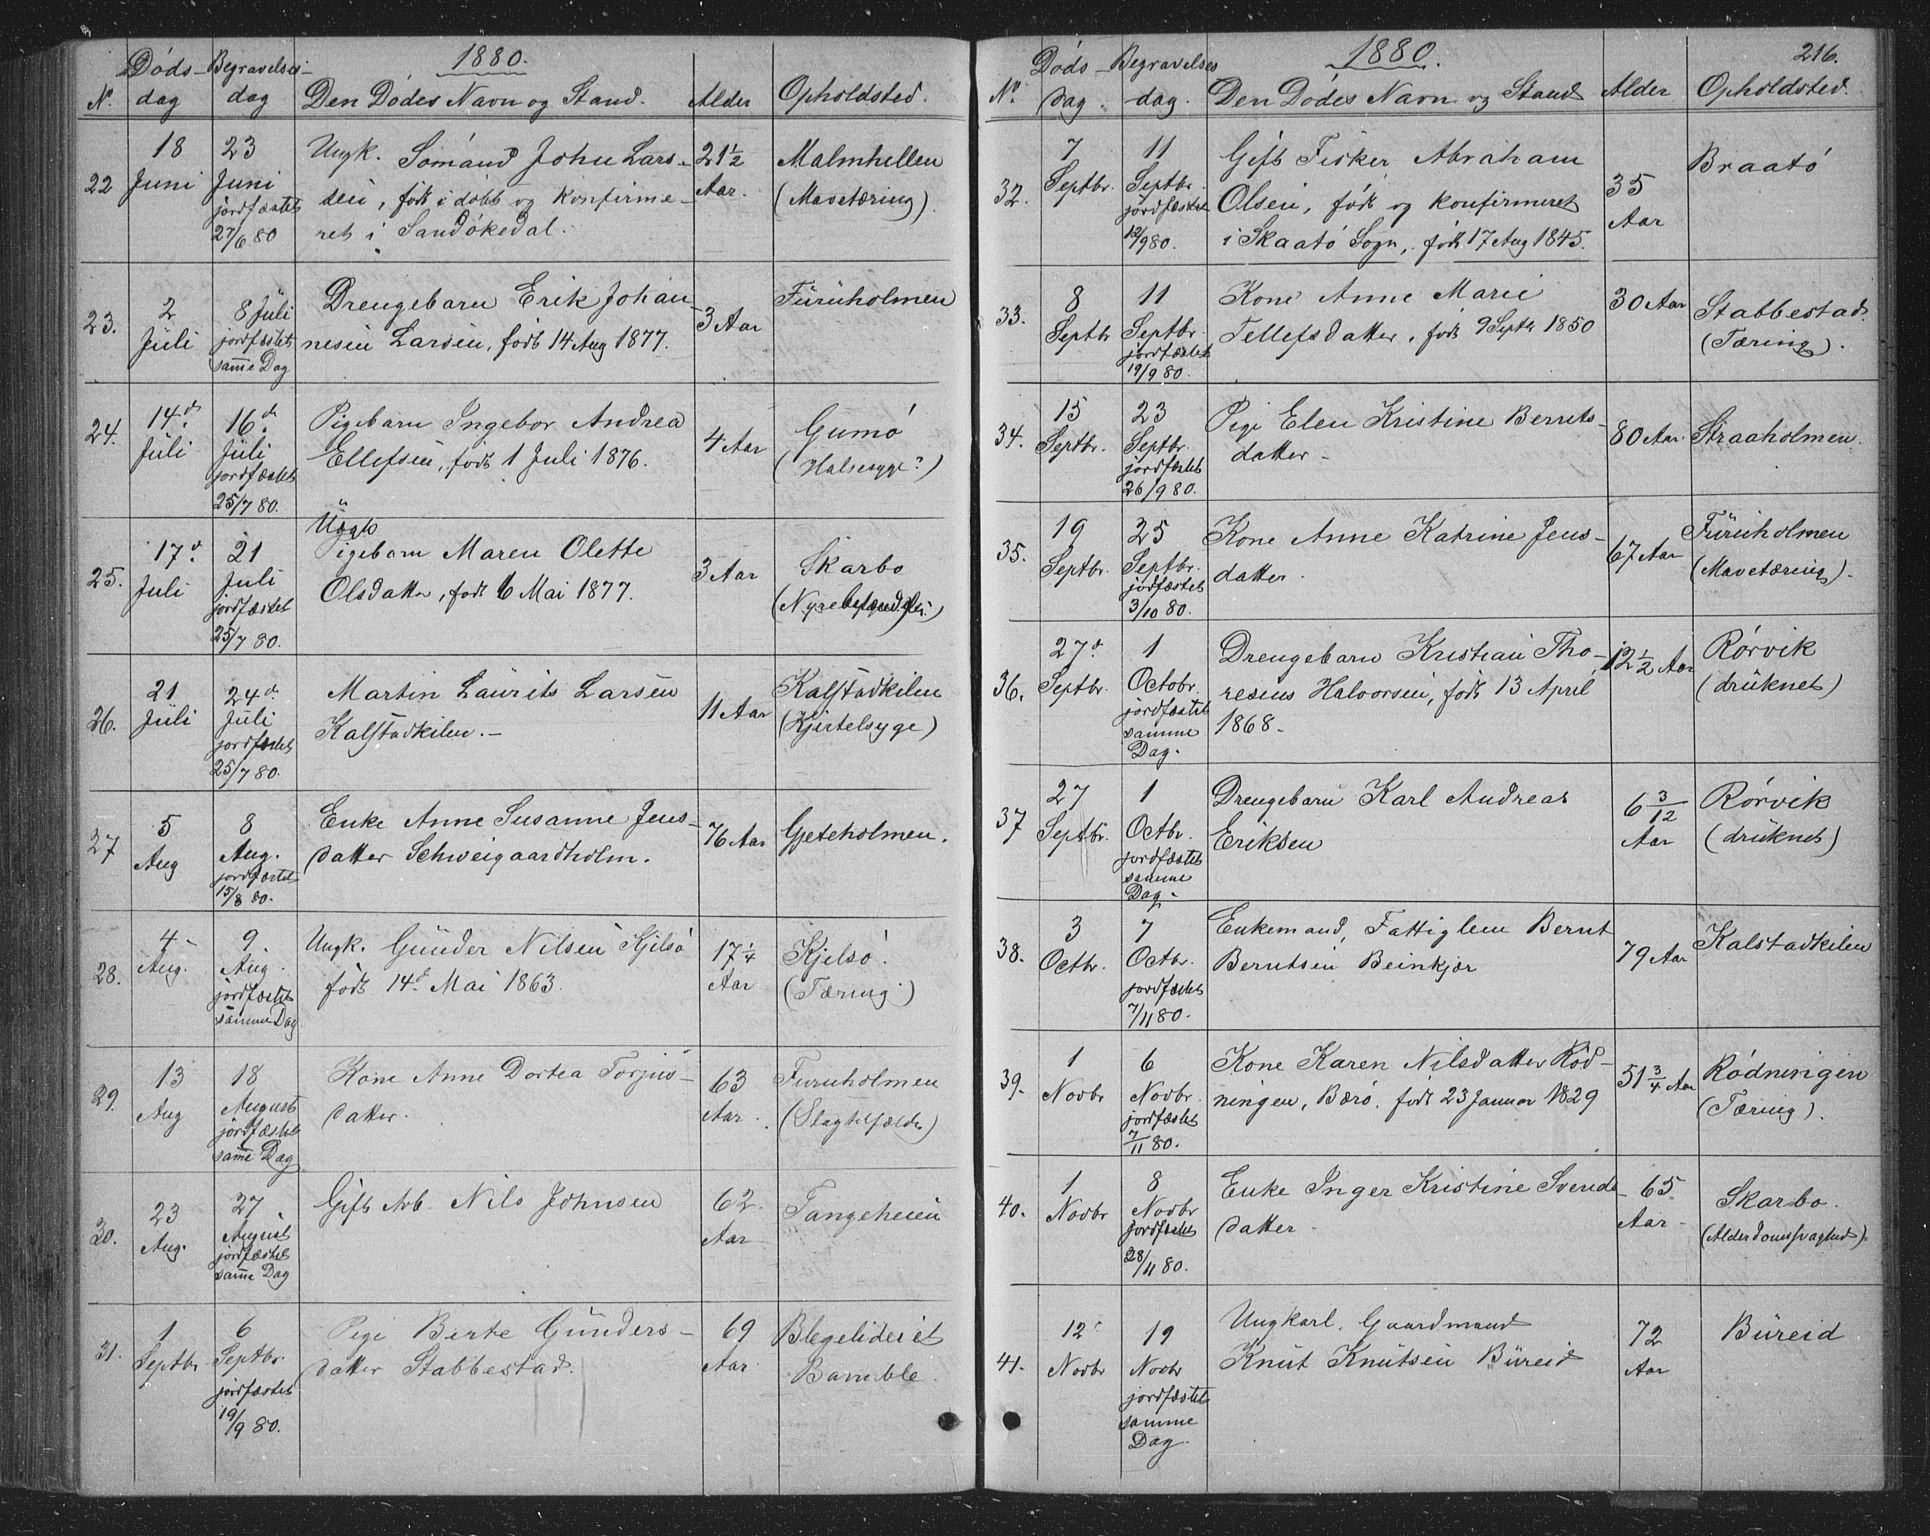 1880.
Døds- Begravelses-
N. dag dag Den Dødes Navn og Stand. Alder Opholdsted.
22 18 Juni 23 Juni jordfæstet 27/6 80
Ungk. Sømand John Lars-
sen, født i døbt og konfirme-
ret i Sandøkedal.
21½ Aar.
Malmhellen
(Mavetæring).
23. 2 Juli 8 Juli jordfæstet samme Dag
Drengebarn Erik Johan
nesen Larsen, født 14 Aug 1877.
3 Aar
Furuholmen
24. 14d. Juli 16d. Juli jordfæstet 25/7 80.
Pigebarn Ingebor Andrea
Ellefsen, født 1 Juli 1876.
4 Aar
Gumø
(Halsesyge?)
25. 17d. Juli 21 Juli jordfæstet 25/7 80.
Pigebarn Maren Olette
Olsdatter, født 6 Mai 1877.
3 Aar
Skarbo
26. 21 Juli 24d. Juli jordfæstet 25/7 80.
Martin Laurits Larsen
Kalstadkilen.-
11 Aar
Kalstadkilen
(Kjertelsyge)
27 5 Aug 8 Aug. jordfæstet 15/8 80.
Enke Anne Susanne Jens-
datter Schweigaardholm.
76 Aar
Gjeteholmen.
28. 4 Aug. 9. Aug. jordfæstet samme Dag
Ungk. Gunder Nilsen Kjelsø
født 14d. Mai 1863.
17¼ Aar
Kjelsø.
(Tæring.)
29. 13 Aug 18 August jordfæstet samme Dag
Kone Anne Dortea Torjus-
datter.
63 Aar.
Furuholmen
(Slagtilfælde)
30. 23 Aug. 27 August jordfæstet samme Dag
Gift Arb. Nils Johnsen
62. Aar
Tangeheien
31. 1 Septbr. 6 Septbr. jordfæstet 19/9 80.
Pige Berte Gunders-
datter Stabbestad.
69 Aar.
Blegelideiet
Bamble.
1880. 216.
Døds- Begravelses
N. dag. dag. Den Dødes Navn og Stand Alder Opholdsted.
32. 7 Septbr. 11 Septbr. jordfæstet 12/9 80.
Gift Fisker Abraham
Olsen, født og konfirmeret
i Skaatø Sogn, født 17 Aug 1845.
35 Aar
Braatø
33. 8 Septbr 11 Septbr. jordfæstet 19/9 80.
Kone Anne Marie
Tellefsdatter, født 9 Septr 1850
30 Aar
Stabbestad.
(Tæring).
34. 15 Septbr. 23 Septbr. jordfæstet 26/9 80.
Pige Elen Kristine Bernts-
datter-
80 Aar
Straaholmen.
35. 19 Septbr. 25 Septbr. jordfæstet 3/10 80.
Kone Anne Katrine Jens-
datter.
67 Aar
Furuholmen
(Mavetæring).
36. 27d. Septbr. 1 Octobr. jordfæstet samme Dag.
Drengebarn Kristian Tho-
resens Halvorsen, født 13 April
1868-
12½ Aar
Rørvik
(druknet)
37 27 Septbr. 1 Octbr. jordfæstet samme Dag.
Drengebarn Karl Andreas
Eriksen
6 3/12 Aar
Rørvik
(druknet)
38. 3 Octbr. 7 Octbr. jordfæstet 7/11 80.
Enkemand, Fattiglem Bernt
Berntsen Beinkjær
79 Aar
Kalstadkilen
39. 1 Novbr 6 Novbr. jordfæstet 7/11 80.
Kone Karen Nilsdatter Rød-
ningen, Bærø. født 23 Januar 1829
51¾ Aar
Rødningen
(Tæring).
40. 1 Novbr 8 Novbr jordfæstet 28/11 80.
Enke Inger Kristine Svends-
datter-
65 Aar-
Skarbo.
(Alderdomssvaghed).
41. 12 Novbr 19 Novbr jordfæstet samme Dag.
Ungkarl. Gaardmand
Knut Knutsen Bureid
72 Aar
Bureid